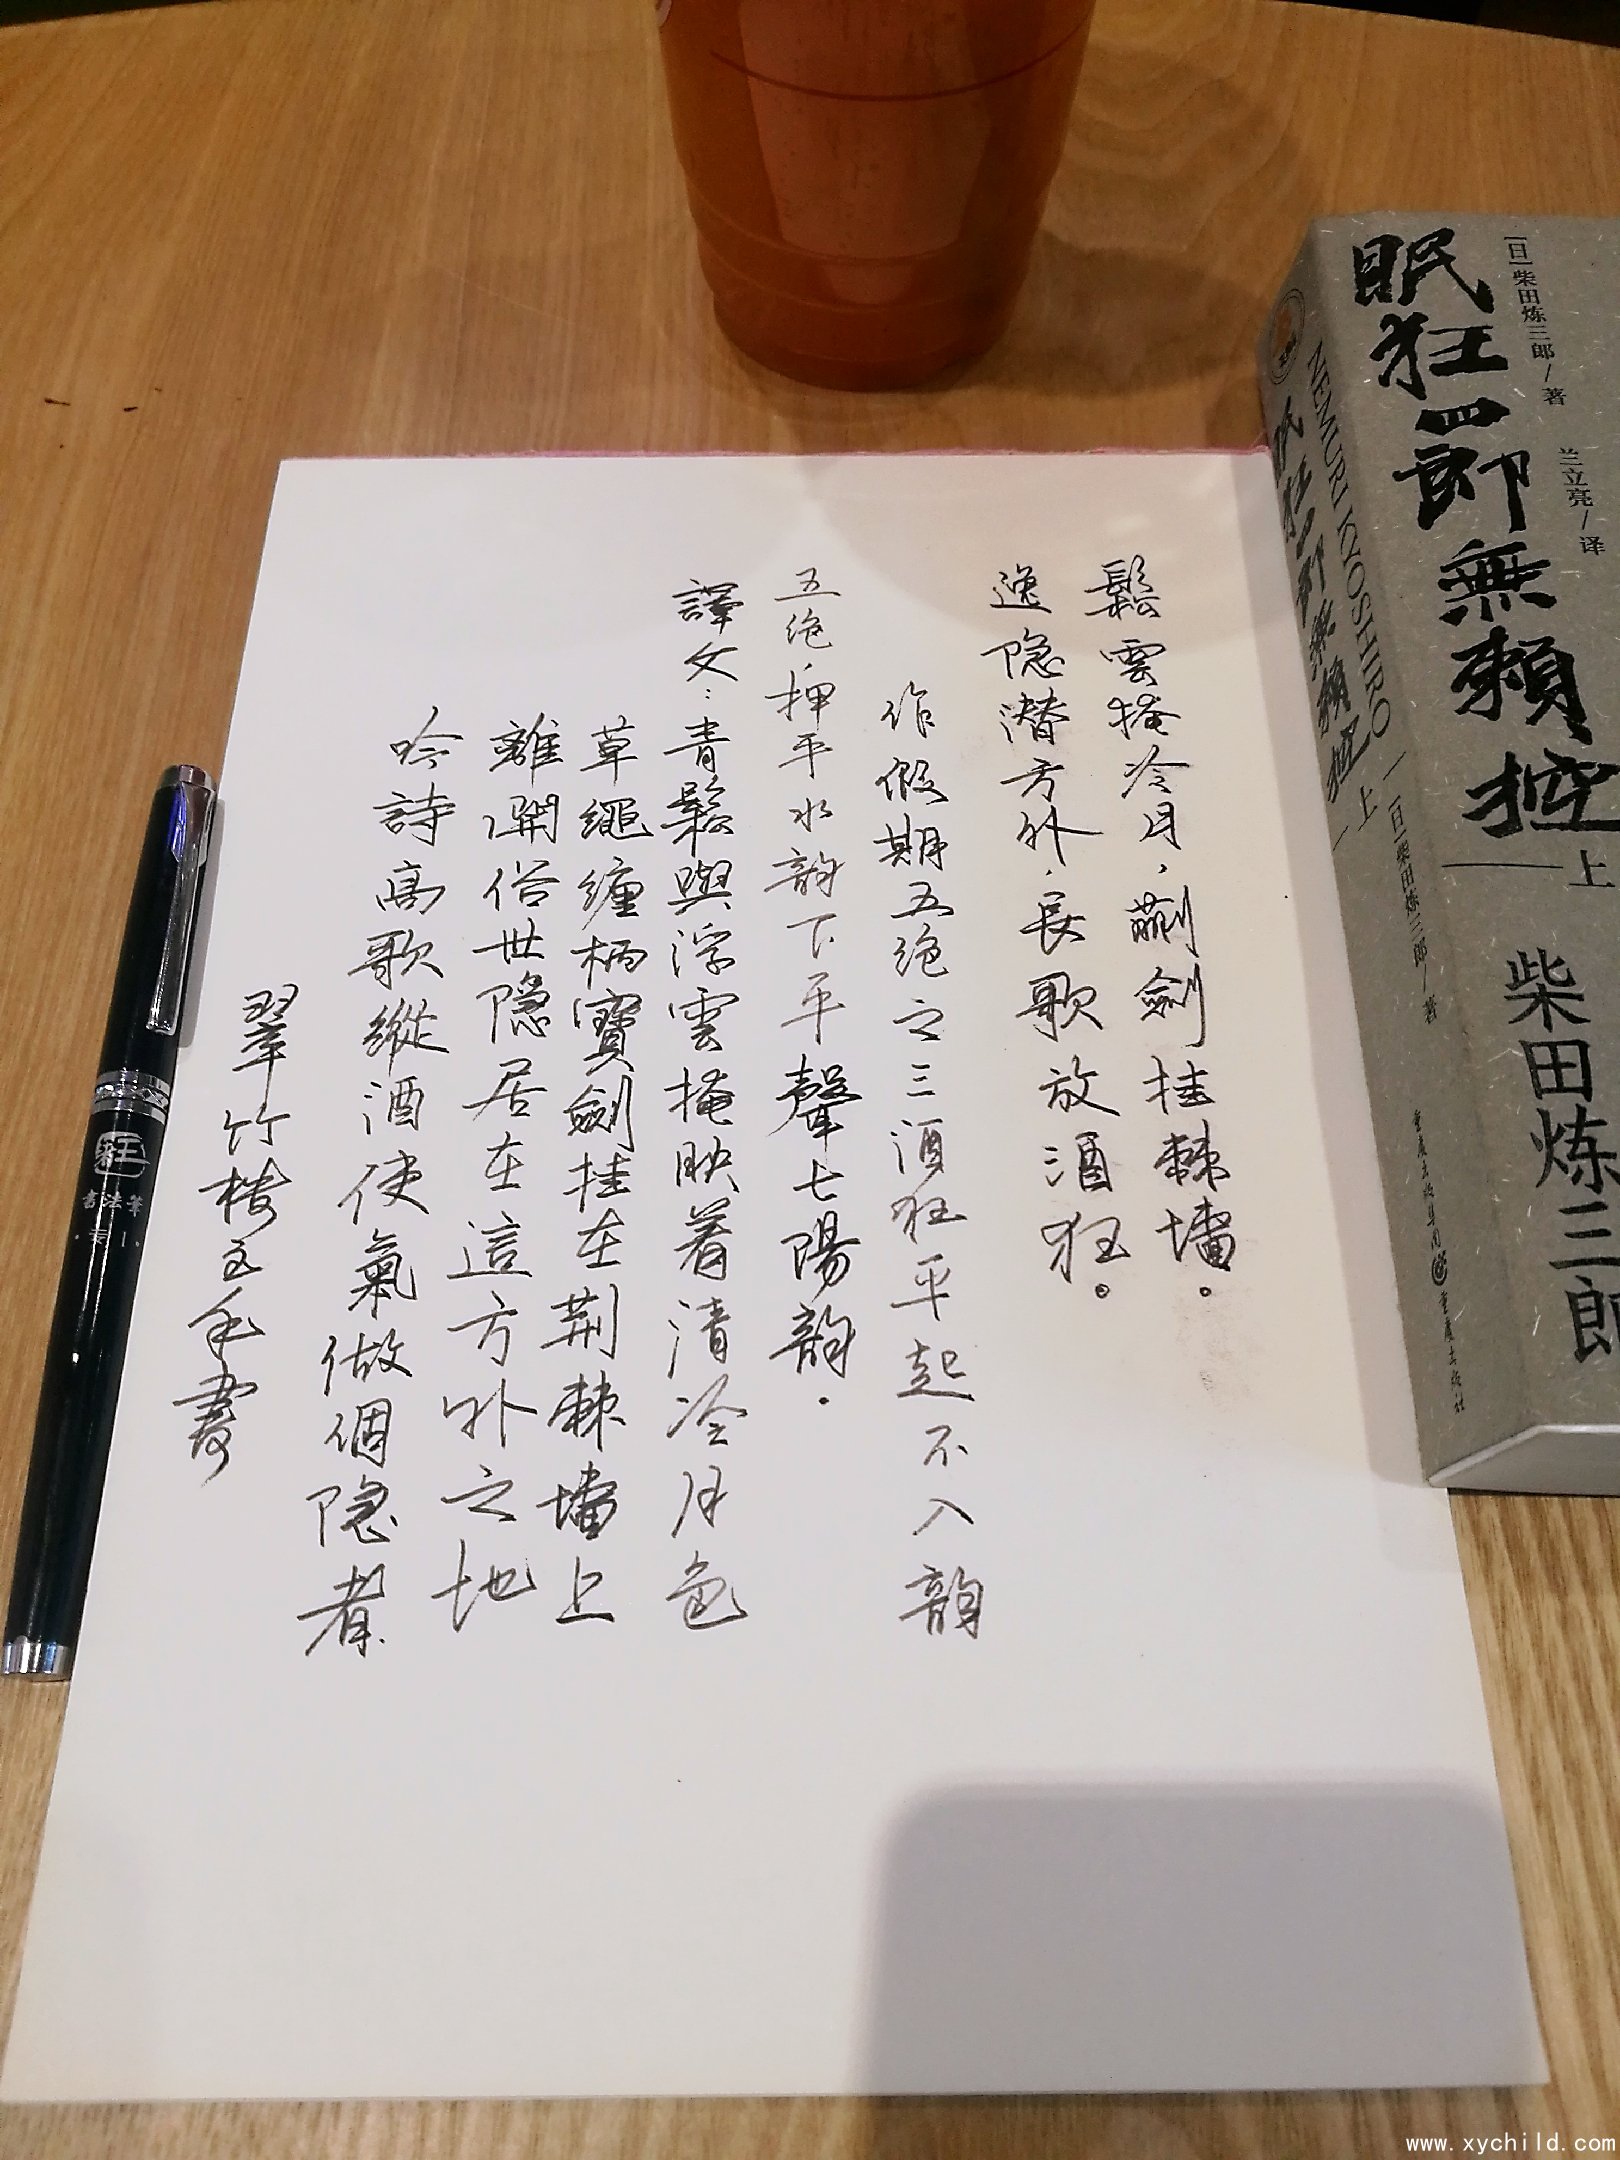 鬆雲掩冷月，蒯劍挂棘墻。
逸隐潜方外，長歌放酒狂。
作假期五绝之三酒狂平起不入韵
五绝，押平水韵下平聲七陽韵.
譯文：青鬆與浮雲掩映着清冷月色
草繩缠柄寳劍挂在荆棘墻上
離開俗世隐居在這方外之地
吟詩高歌縱酒使氣做個隐者.
翠竹樓主手書
[日]柴田炼三郎/著
兰立亮/译
眠狂四郎無賴控
上
柴田炼三郎
NEMURI KYOSHIRO
眠狂四郎無賴控
上
[日]柴田炼三郎/著
重庆出版集团 重庆出版社
狂
书法筆
www.xychild.com